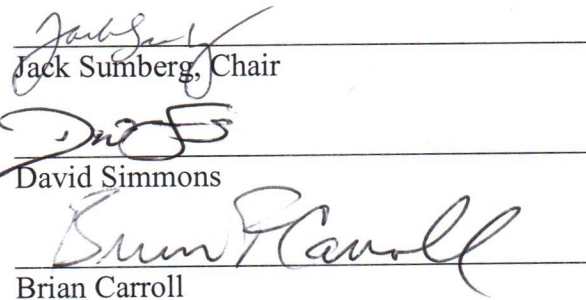 Jack Sumberg, Chair
David Simmons
Brian P Carroll
Brian Carroll